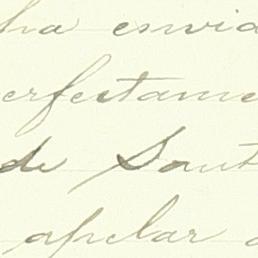 ha envia
erfectame
de Sant
apelar a